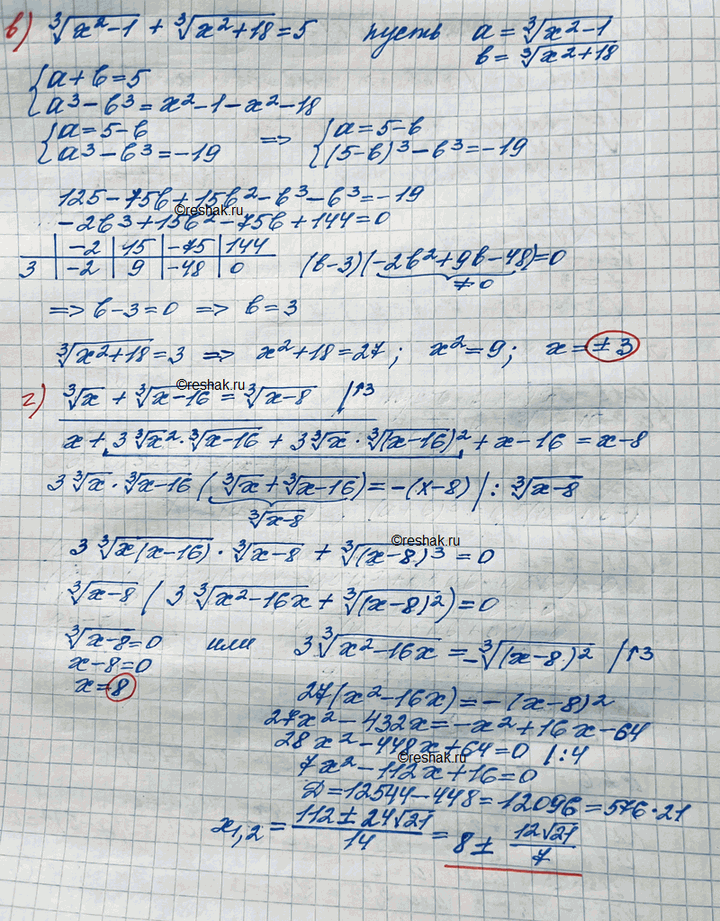 в) ∛(x²-1) + ∛(x²+18) = 5 пусть a = ∛(x²-1)
b = ∛(x²+18)
{ a+b=5
{ a³-b³=x²-1-x²-18
{ a=5-b => { a=5-b
{ a³-b³=-19 { (5-b)³-b³=-19
125-75b+15b²-b³-b³=-19
©reshak.ru
-2b³+15b²-75b+144=0
| -2 | 15 | -75 | 144
3 | -2 | 9 | -48 | 0 (b-3)(-2b²+9b-48)=0
≠0
=> b-3=0 => b=3
∛(x²+18)=3 => x²+18=27; x²=9; x=±3
©reshak.ru
г) ∛x + ∛(x-16) = ∛(x-8) /↑3
x + 3∛x²·∛(x-16) + 3∛x·∛(x-16)² + x-16 = x-8
3∛x·∛(x-16) (∛x+∛(x-16)) = -(x-8) /: ∛(x-8)
∛(x-8)
©reshak.ru
3∛(x(x-16))·∛(x-8) + ∛(x-8)³ = 0
∛(x-8) (3∛(x²-16x) + ∛(x-8)²) = 0
∛(x-8)=0 или 3∛(x²-16x) = -∛(x-8)² /↑3
x-8=0
x=8
27(x²-16x)=-(x-8)²
27x²-432x=-x²+16x-64
28x²-448x+64=0 /:4
©reshak.ru
7x²-112x+16=0
D=12544-448=12096=576·21
x₁,₂ = (112±24√21)/14 = 8± 12√21/7